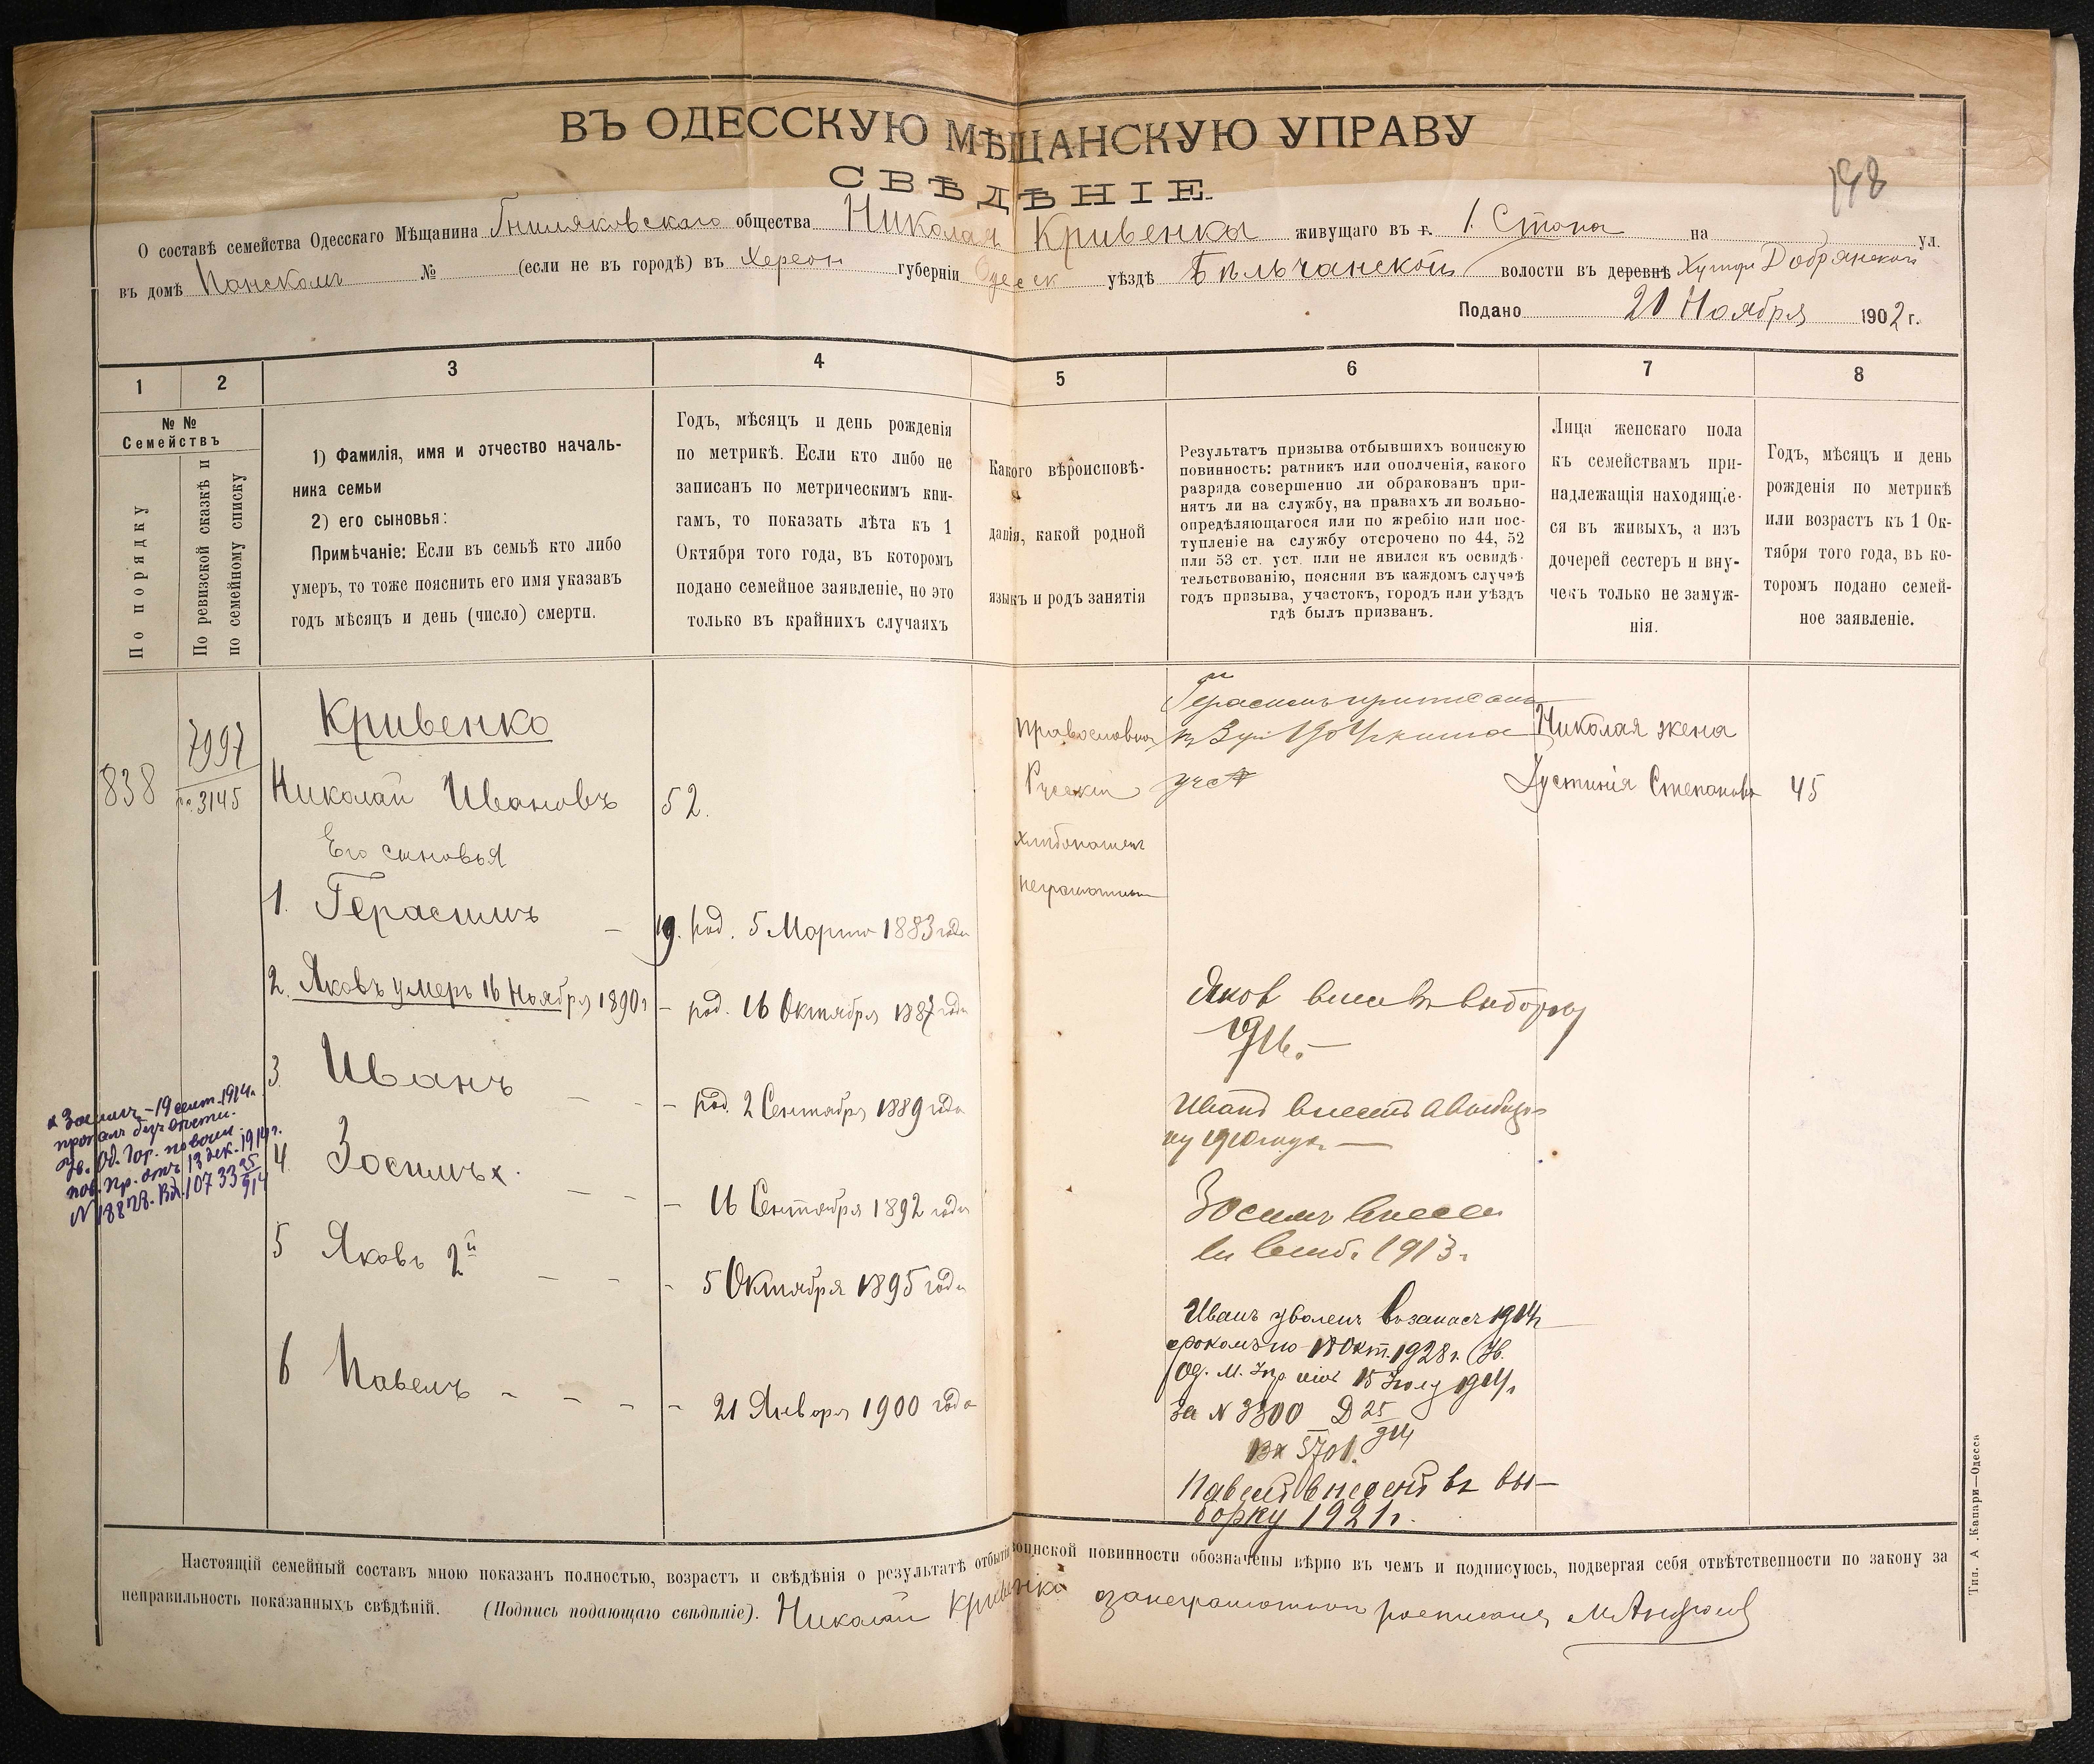 ВЪ ОДЕССКУЮ МѢЩАНСКУЮ УПРАВУ
СВѢДѢНІЕ
198
О составѣ семейства Одесскаго Мѣщанина Гниляковскаго общества Николая Кривенка живущаго въ г. 1. Стана на ул.
въ домѣ Панскомъ № (если не въ городѣ) въ Херсон губерніи Одесск уѣздѣ Бѣльчанской волости въ деревнѣ Хутор Добрянской
Подано 20 Ноября 1902 г.
1 2 3 4 5 6 7 8
№ №
Семействъ
По порядку
По ревизской сказкѣ и
по семейному списку
1) Фамилія, имя и отчество началь-
ника семьи
2) его сыновья:
Примѣчаніе: Если въ семьѣ кто либо
умеръ, то тоже пояснить его имя указавъ
годъ мѣсяцъ и день (число) смерти.
Годъ, мѣсяцъ и день рожденія
по метрикѣ. Если кто либо не
записанъ по метрическимъ кни-
гамъ, то показать лѣта къ 1
Октября того года, въ которомъ
подано семейное заявленіе, но это
только въ крайнихъ случаяхъ
Какого вѣроисповѣ-
данія, какой родной
языкъ и родъ занятія
Результатъ призыва отбывшихъ воинскую
повинность: ратникъ или ополченія, какого
разряда совершенно ли обракованъ при-
нятъ ли на службу, на правахъ ли вольно-
опредѣляющагося или по жребію или пос-
тупленіе на службу отсрочено по 44, 52
или 53 ст. уст. или не явился къ освидѣ-
тельствованію, поясняя въ каждомъ случаѣ
годъ призыва, участокъ, городъ или уѣздъ
гдѣ былъ призванъ.
Лица женскаго пола
къ семействамъ при-
надлежащія находящіе-
ся въ живыхъ, а изъ
дочерей сестеръ и вну-
чекъ только не замуж-
нія.
Годъ, мѣсяцъ и день
рожденія по метрикѣ
или возрастъ къ 1 Ок-
тября того года, въ ко-
торомъ подано семей-
ное заявленіе.
838
7997
3145
Кривенко
Николай Ивановъ 52.
Его сыновья
1. Герасимъ — 19. род. 5 Марта 1883 года
2. Яковъ умеръ 16 Ноября 1890 г — род. 16 Октября 1887 года
3. Иванъ — — — род. 2 Сентября 1889 года
4. Зосимъ х. — — — 16 Сентября 1892 года
5 Яковъ 2й — — — 5 Октября 1895 года
6 Павелъ — — — — 21 Января 1900 года
х Зосимъ – 19 сент. 1914 г.
пропалъ безъ вѣсти.
Ув. Од. Гор. по воин.
пов. пр. отъ 13 дек. 1914 г.
Вх. 10733 25/914
православная
Русскій
хлибопашец
неграмотный
Герасимъ приписанъ
уч
Николая жена
Іустинія Степанова 45
Яков внесен в выборку
1916. —
Иванъ внесенъ в выбор-
ку 1910 года. —
Зосимъ внесен
1913 г.
Иванъ уволенъ въ запасъ 1914 г
срокомъ по 18 Окт. 1928 г. (Ув.
Од. М. Упр 15 Іюля 1914 г.
за N 3300 Д 25/914
Вх 5701.
Павелъ внесенъ въ вы—
борку 1921 г.
Настоящій семейный составъ мною показанъ полностью, возрастъ и свѣдѣнія о результатѣ отбытія воинской повинности обозначены вѣрно въ чемъ и подписуюсь, подвергая себя отвѣтственности по закону за
неправильность показанныхъ свѣдѣній. (Подпись подающаго свѣдѣніе). Николай Кривенко а занеграмотного росписался
Тип. А. Капари—Одесса